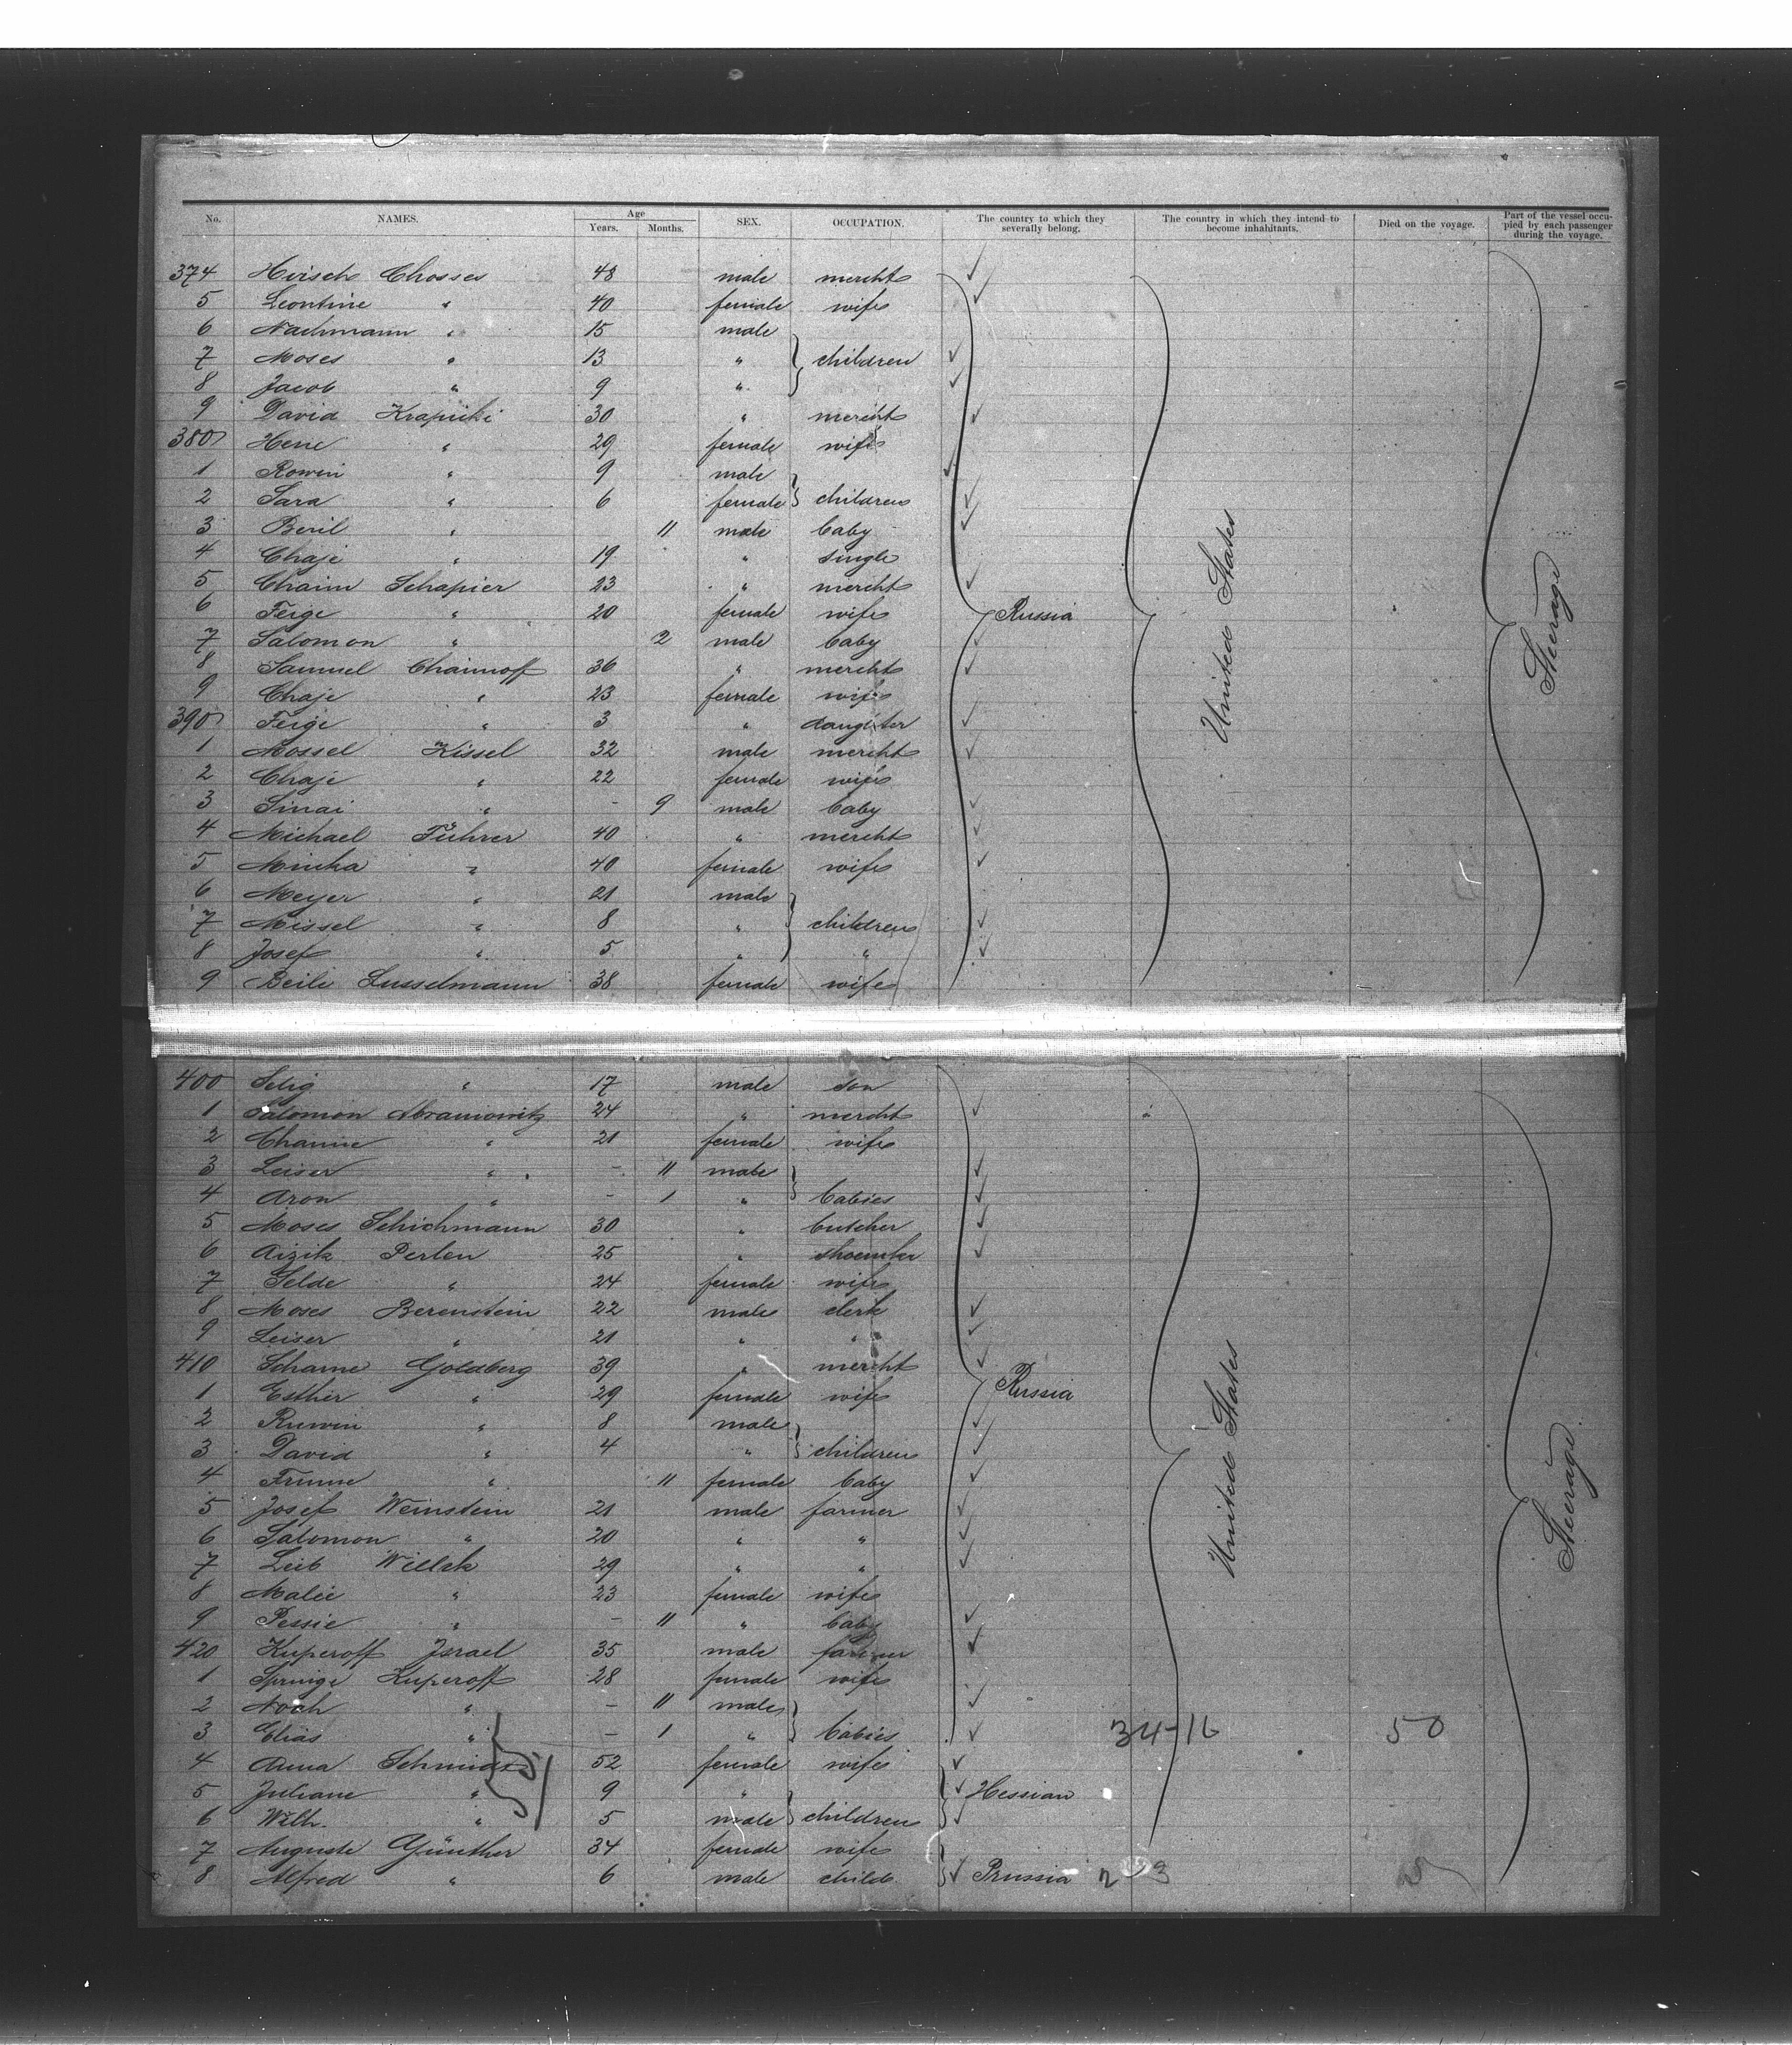 No. NAMES. Age Years. Months. SEX. OCCUPATION. The country to which they severally belong. The country in which they intend to become inhabitants. Died on the voyage. Part of the vessel occupied by each passenger during the voyage.
374 Hirsch Chosses 48 male mercht
5 Leontine " 40 female wife
6 Nachmann " 15 male
7 Moses " 13 " children
8 Jacob " 9 "
9 David Krapicki 30 " mercht
380 Hene " 29 female wife
1 Rowin " 9 male
2 Sara " 6 female children
3 Beril " 11 male baby
4 Chaje " 19 " single
5 Chaim Schapier 23 " mercht
6 Feige " 20 female wife Russia United States Steerage
7 Salomon " 2 male baby
8 Samuel Chaimoff 36 " mercht
9 Chaje " 23 female wife
390 Feige " 3 " daughter
1 Mossel Kissel 32 male mercht
2 Chaje " 22 female wife
3 Sinai " - 9 male baby
4 Michael Führer 40 " mercht
5 Mincha " 40 female wife
6 Meyer " 21 male
7 Missel " 8 " children
8 Josef " 5 " "
9 Beile Susselmann 38 female wife
400 Selig " 17 male son
1 Salomon Abramowitz 24 " mercht "
2 Channe " 21 female wife
3 Leiser " - 11 male
4 Aron " - 1 " babies
5 Moses Schichmann 30 " butcher
6 Aizik Perlen 25 " shoemker
7 Selde " 24 female wife
8 Moses Berenstein 22 male clerk
9 Leiser " 21 " "
410 Scharne Goldberg 39 " mercht
1 Esther " 29 female wife Russia United States Steerage
2 Ruwin " 8 male
3 David " 4 " children
4 Frume " 11 female baby
5 Josef Weinstein 21 male farmer
6 Salomon " 20 " "
7 Leib Willek 29 " "
8 Malie " 23 female wife
9 Pessie " - 11 " baby
420 Kuperoff Israel 35 male farmer
1 Springe Kuperoff 28 female wife
2 Noch " - 11 male
3 Elias " - 1 " babies 34-16 50
4 Anna Schmidt 52 female wife
5 Juliane " 9 " Hessian
6 Wilh. " 5 male children
7 Auguste Günther 34 female wife
8 Alfred " 6 male child Prussia